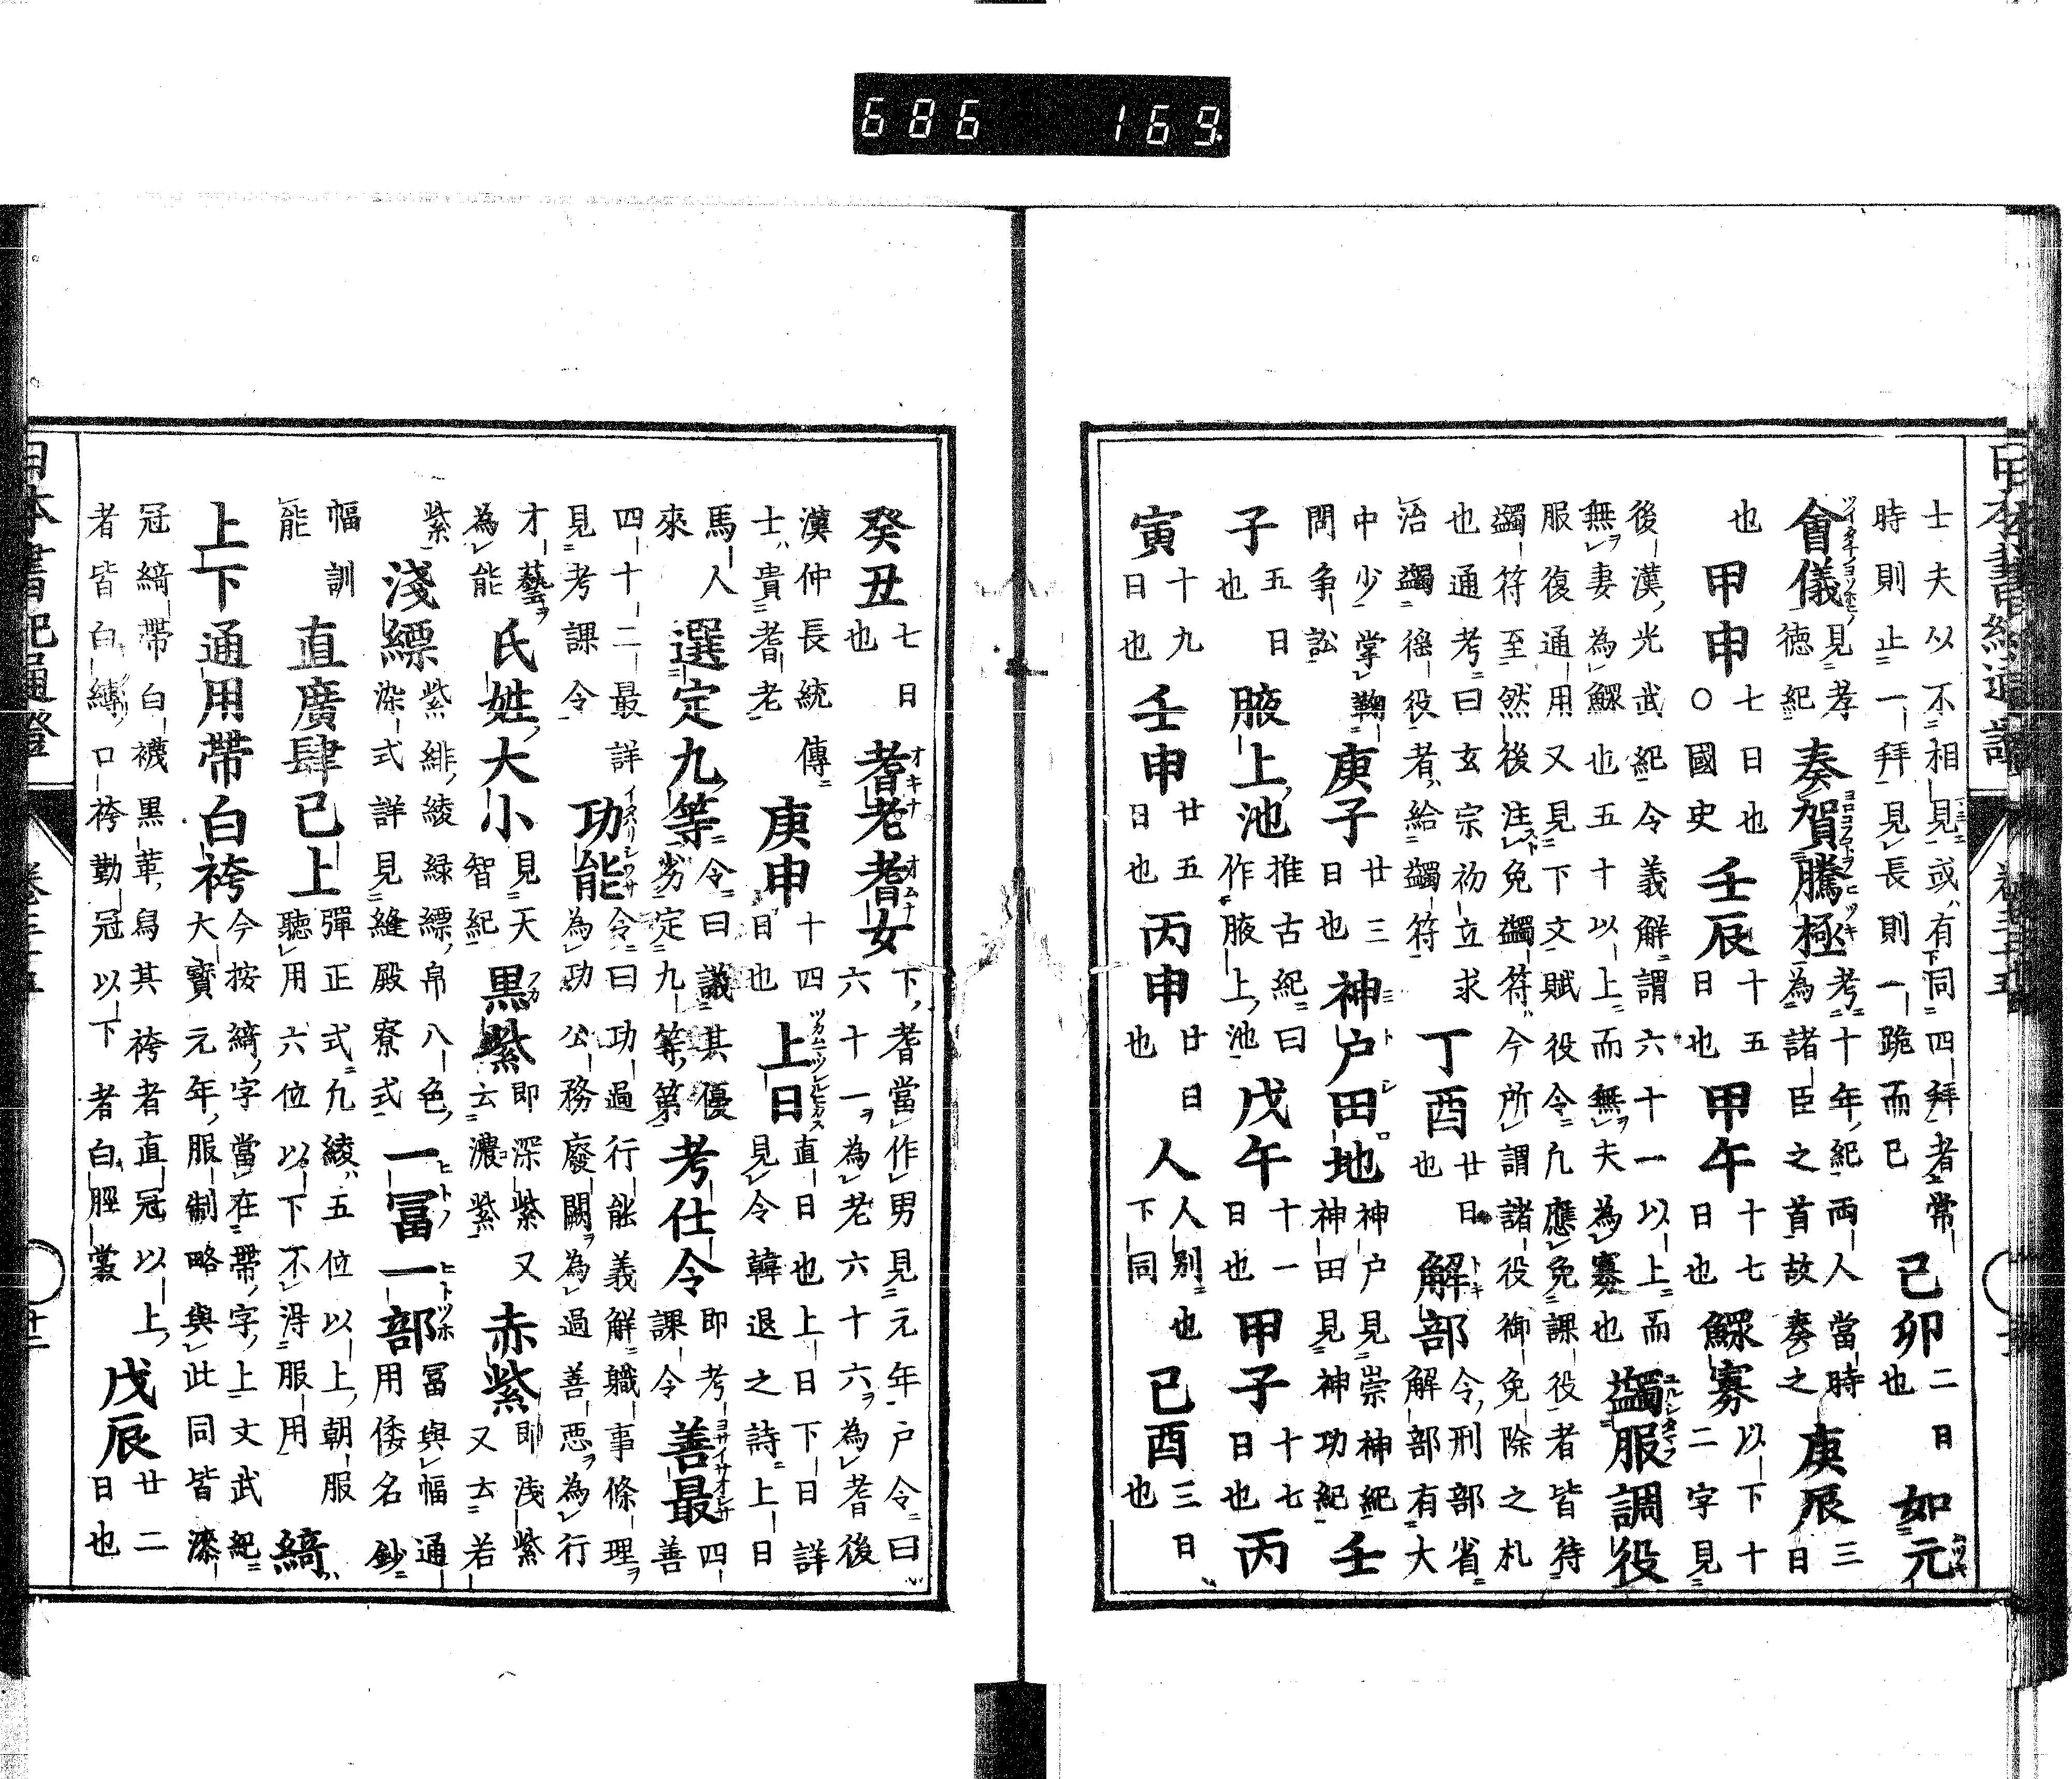 686 169
士夫以不相見或有同四拜者常
時則止一拜見長則一跪而已
己卯二日也
如元
會儀見孝德紀
奏賀騰極考十年紀兩人當時為諸臣之首故奏之
庚辰三日也
甲申七日也○國史
壬辰十五日也
甲午十七日也
鰥寡以下十二字見
後漢光武紀令義解謂六十一以上而
無妻為鰥也五十以上而無夫為寡也
蠲服調役
服復通用又見下文賦役令凡應免課役者皆待
蠲符至然後注免蠲符今所謂諸役御免除之札
也通考曰玄宗初立求
治蠲徭役者給蠲符
丁酉廿日也
解部令刑部省解部有大
中少掌鞠
問爭訟
庚子廿三日也
神戶田地神戶見崇神紀神田見神功紀
壬
子五日也
腋上池推古紀曰作腋上池
戊午十一日也
甲子十七日也
丙
寅十九日也
壬申廿五日也
丙申廿日也
人人別也下同
己酉三日也
癸丑七日也
耆老耆女下耆當作男見元年戶令曰六十一為老六十六為耆後
漢仲長統傳
士貴耆老
庚申十四日也
上日直日也上日下日詳見令韓退之詩上日
馬人
來
選定九等令曰議其優劣定九等第
考仕令即考課令
善最四善
四十二最詳
見考課令
功能令曰功過行能義解職事條理為功公務廢闕為過善惡為行
才藝
為能
氏姓大小見天智紀
黑紫即深紫又云濃紫
赤紫即淺紫又云若
紫
淺縹紫緋綾綠縹帛八色染式詳見縫殿寮式
一冨一部冨與幅通用倭名鈔
幅訓
能
直廣肆已上彈正式凡綾五位以上朝服聽用六位以下不得服用
綺
上下通用帶白袴今按綺字當在帶字上文武紀大寶元年服制略與此同皆漆
冠綺帶白襪黑革舃其袴者直冠以上
者皆白縛口袴勤冠以下者白脛裳
戊辰廿二日也
日本書紀通證
卷三十五
廿二